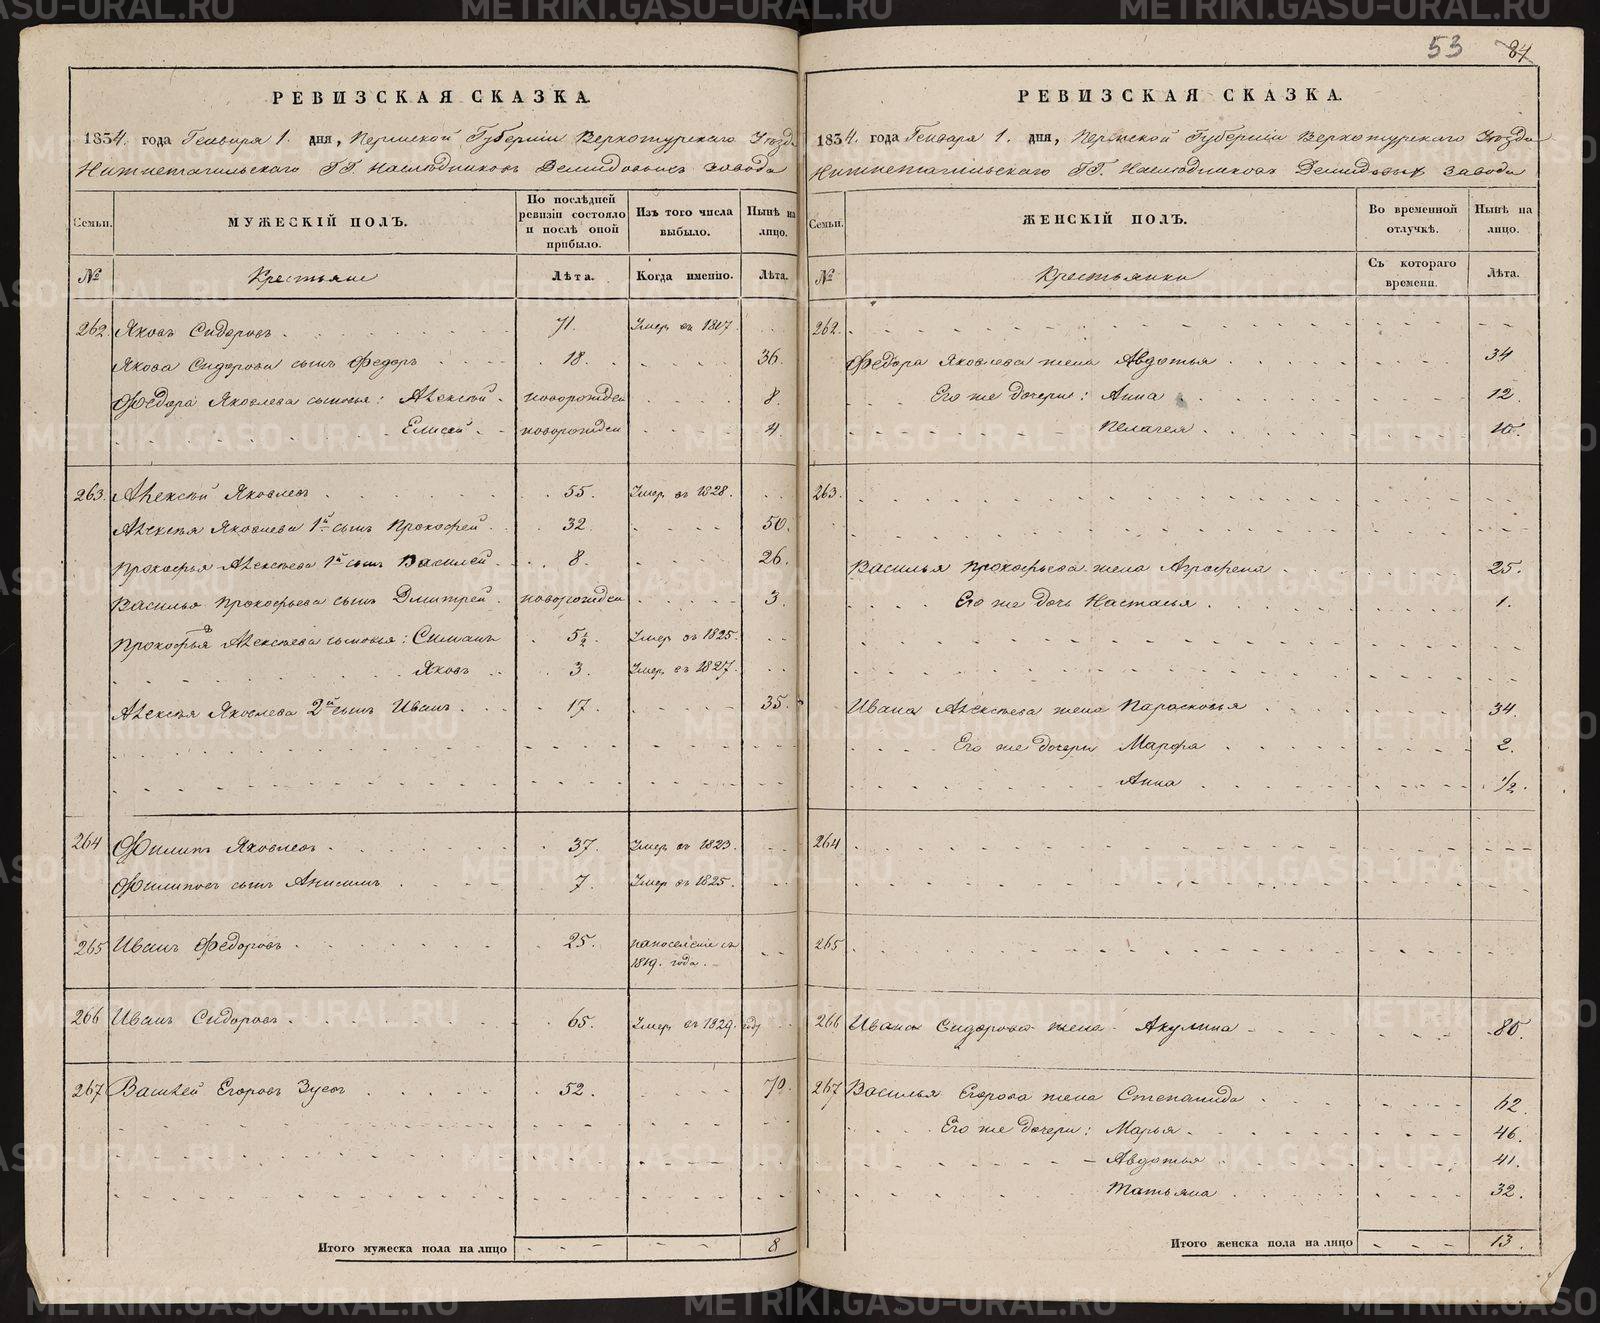 53 84
РЕВИЗСКАЯ СКАЗКА.
1834. года Генваря 1. дня, Пермской Губернiи Верхотурскаго Уѣзда
Нижнетагильскаго ГГ. Наслѣдниковъ Демидовыхъ завода
Семьи. МУЖЕСКІЙ ПОЛЪ. По послѣдней ревизіи состояло и послѣ оной прибыло. Изъ того числа выбыло. Нынѣ на лицо.
№ Крестьяне Лѣта. Когда именно. Лѣта.
262. Яковъ Сидоровъ 71. Умер. въ 1817.
Якова Сидорова сынъ Федоръ 18. 36.
Федора Яковлева сыновья: Алексѣй новорожден 8.
Елисей новорожден 4.
263. Алексѣй Яковлевъ 55. Умер. въ 1828.
Алексѣя Яковлева 1й сынъ Прокофей 32. 50.
Прокофья Алексѣева 1й сынъ Василей 8. 26.
Василья Прокофьева сынъ Дмитрей новорожден 3.
Прокофья Алексѣева сыновья: Симанъ 5½. Умер. въ 1825.
Яковъ 3. Умер. въ 1827.
Алексѣя Яковлева 2й сынъ Иванъ 17. 35.
264 Филипъ Яковлевъ 37. Умер. въ 1823.
Филиповъ сынъ Анисимъ 7. Умер. въ 1825.
265 Иванъ Федоровъ 25. на поселѣніе съ
1819. года.
266 Иванъ Сидоровъ 65. Умер. въ 1829. год
267 Василей Егоровъ Зуевъ 52. 70.
Итого мужеска пола на лицо 8
РЕВИЗСКАЯ СКАЗКА.
1834. года Генваря 1. дня, Пермской Губернiи Верхотурскаго Уѣзда
Нижнетагильскаго ГГ. Наслѣдниковъ Демидовыхъ завода
Семьи. ЖЕНСКІЙ ПОЛЪ. Во временной отлучкѣ. Нынѣ на лицо.
№ Крестьянки Съ котораго времени. Лѣта.
262.
Федора Яковлева жена Авдотья 34
Его же дочери: Анна 12.
Пелагея 10.
263.
Василья Прокофьева жена Аграфена 25.
Его же дочь Настасья 1.
Ивана Алексѣева жена Парасковья 34.
Его же дочери Марфа 2.
Анна 1/2.
264
265
266 Ивана Сидорова жена Акулина 80.
267 Василья Егорова жена Степанида 62.
Его же дочери: Марья 46.
Авдотья 41.
Татьяна 32.
Итого женска пола на лицо 13.
METRIKI.GASO-URAL.RU